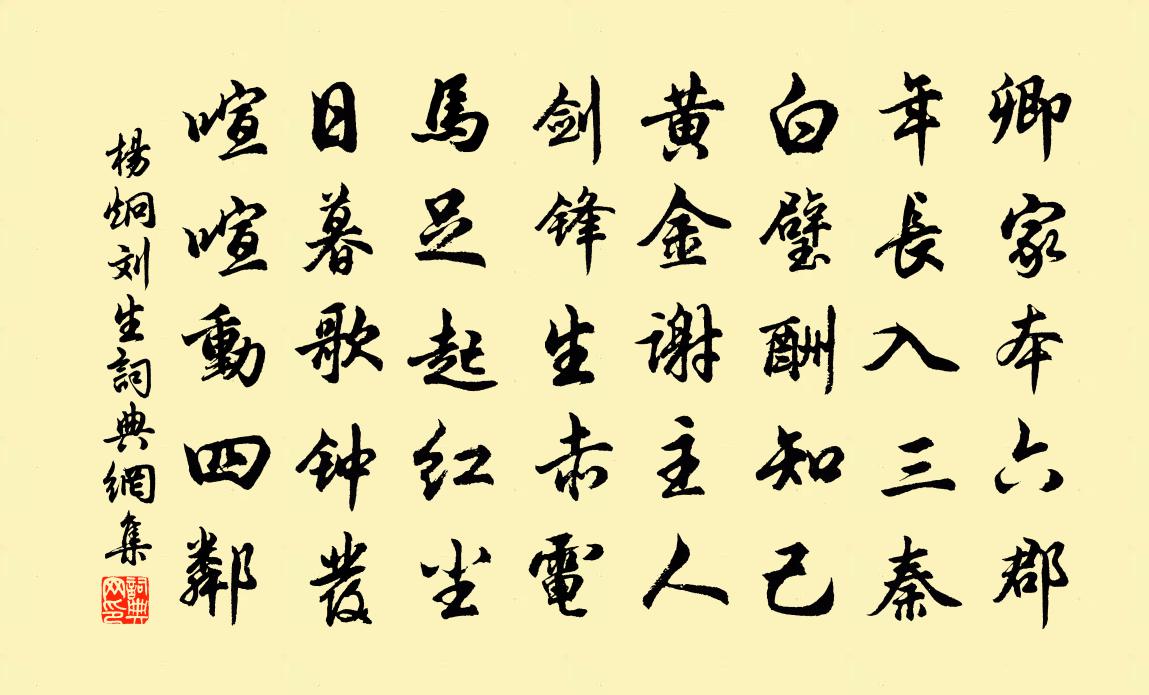 卿家本六郡
年長入三秦
白璧酬知己
黄金謝主人
劍鋒生赤電
馬足起红尘
日暮歌钟發
喧喧動四鄰
楊炯刘生詞典網集
詞典